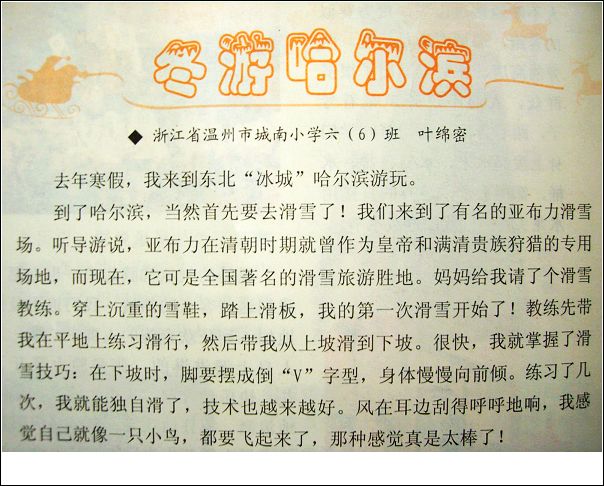 冬游哈尔滨
◆ 浙江省温州市城南小学六（6）班 叶绵密
去年寒假，我来到东北“冰城”哈尔滨游玩。
到了哈尔滨，当然首先要去滑雪了！我们来到了有名的亚布力滑雪
场。听导游说，亚布力在清朝时期就曾作为皇帝和满清贵族狩猎的专用
场地，而现在，它可是全国著名的滑雪旅游胜地。妈妈给我请了个滑雪
教练。穿上沉重的雪鞋，踏上滑板，我的第一次滑雪开始了！教练先带
我在平地上练习滑行，然后带我从上坡滑到下坡。很快，我就掌握了滑
雪技巧：在下坡时，脚要摆成倒“V”字型，身体慢慢向前倾。练习了几
次，我就能独自滑了，技术也越来越好。风在耳边刮得呼呼地响，我感
觉自己就像一只小鸟，都要飞起来了，那种感觉真是太棒了！